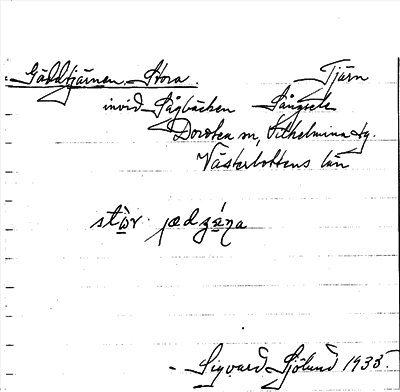 Gäddtjärnen, Stora. Tjärn
invid Sågbäcken Långsele
Dorotea sn, Vilhelmina tg.
Västerbottens län
stòr jædʒǽṇa
Sigvard Sjölund 1935.